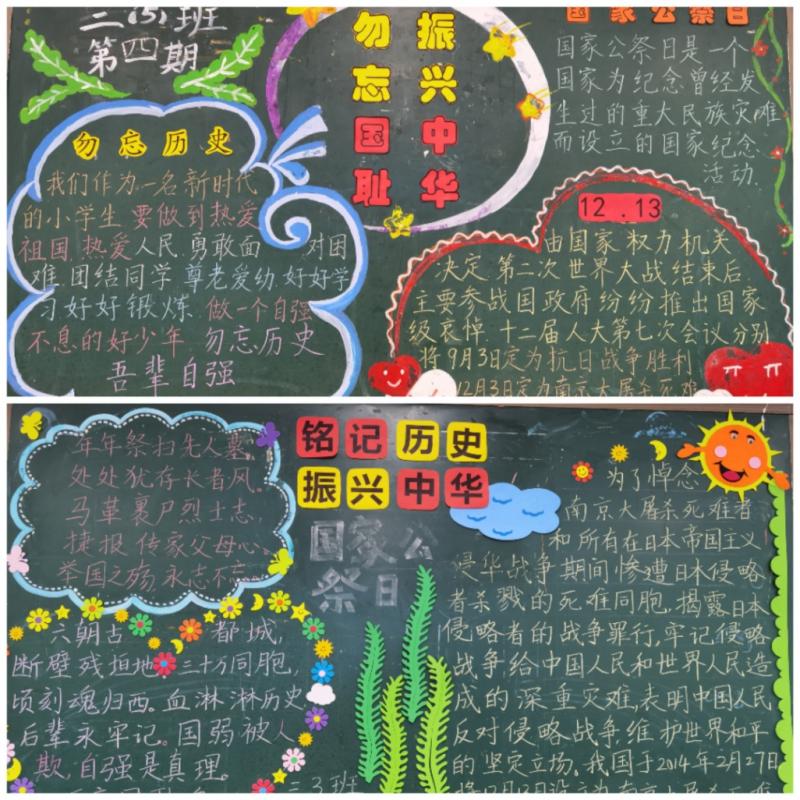 三(5)班
第四期
勿忘历史
我们作为一名新时代
的小学生 要做到热爱
祖国,热爱人民,勇敢面 对困
难,团结同学 尊老爱幼,好好学
习好好锻炼,做一个自强
不息的好少年 勿忘历史
吾辈自强
振兴中华
勿忘国耻
国家公祭日
国家公祭日是一个
国家为纪念曾经发
生过的重大民族灾难
而设立的国家纪念
活动.
12.13
由国家权力机关
决定.第二次世界大战结束后
主要参战国政府纷纷推出国家
级哀悼.十二届人大第七次会议分别
将9月3日定为抗日战争胜利
12月3日定为南京大屠杀死难
年年祭扫先人墓,
处处犹存长者风。
马革裹尸烈士志,
捷报传家父母心。
举国之殇永志不忘。
铭记历史
振兴中华
国家公
祭日
六朝古 都城,
断壁残垣地,三十万同胞,
顷刻魂归西。血淋淋历史,
后辈永牢记。国弱被人
欺,自强是真理。
三3班
为了悼念
南京大屠杀死难者
和所有在日本帝国主义
侵华战争期间惨遭日本侵略
者杀戮的死难同胞,揭露日本
侵略者的战争罪行,牢记侵略
战争给中国人民和世界人民造
成的深重灾难,表明中国人民
反对侵略战争,维护世界和平
的坚定立场。我国于2014年2月27日